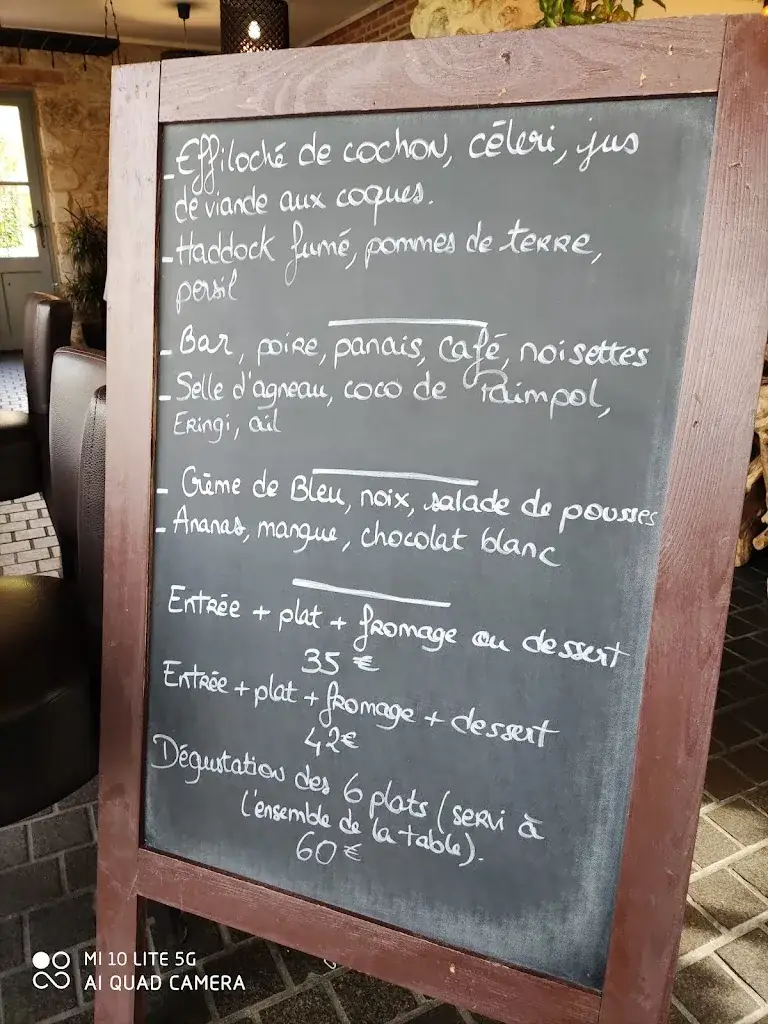 - Effiloché de cochon, céleri, jus
de viande aux coques.
- Haddock fumé, pommes de terre,
persil
- Bar, poire, panais, café, noisettes
- Selle d'agneau, coco de Paimpol,
Eringi, ail
- Crème de Bleu, noix, salade de pousses
- Ananas, mangue, chocolat blanc
Entrée + plat + fromage ou dessert
35 €
Entrée + plat + fromage + dessert
42€
Dégustation des 6 plats (servi à
l'ensemble de la table).
60 €
MI 10 LITE 5G
AI QUAD CAMERA